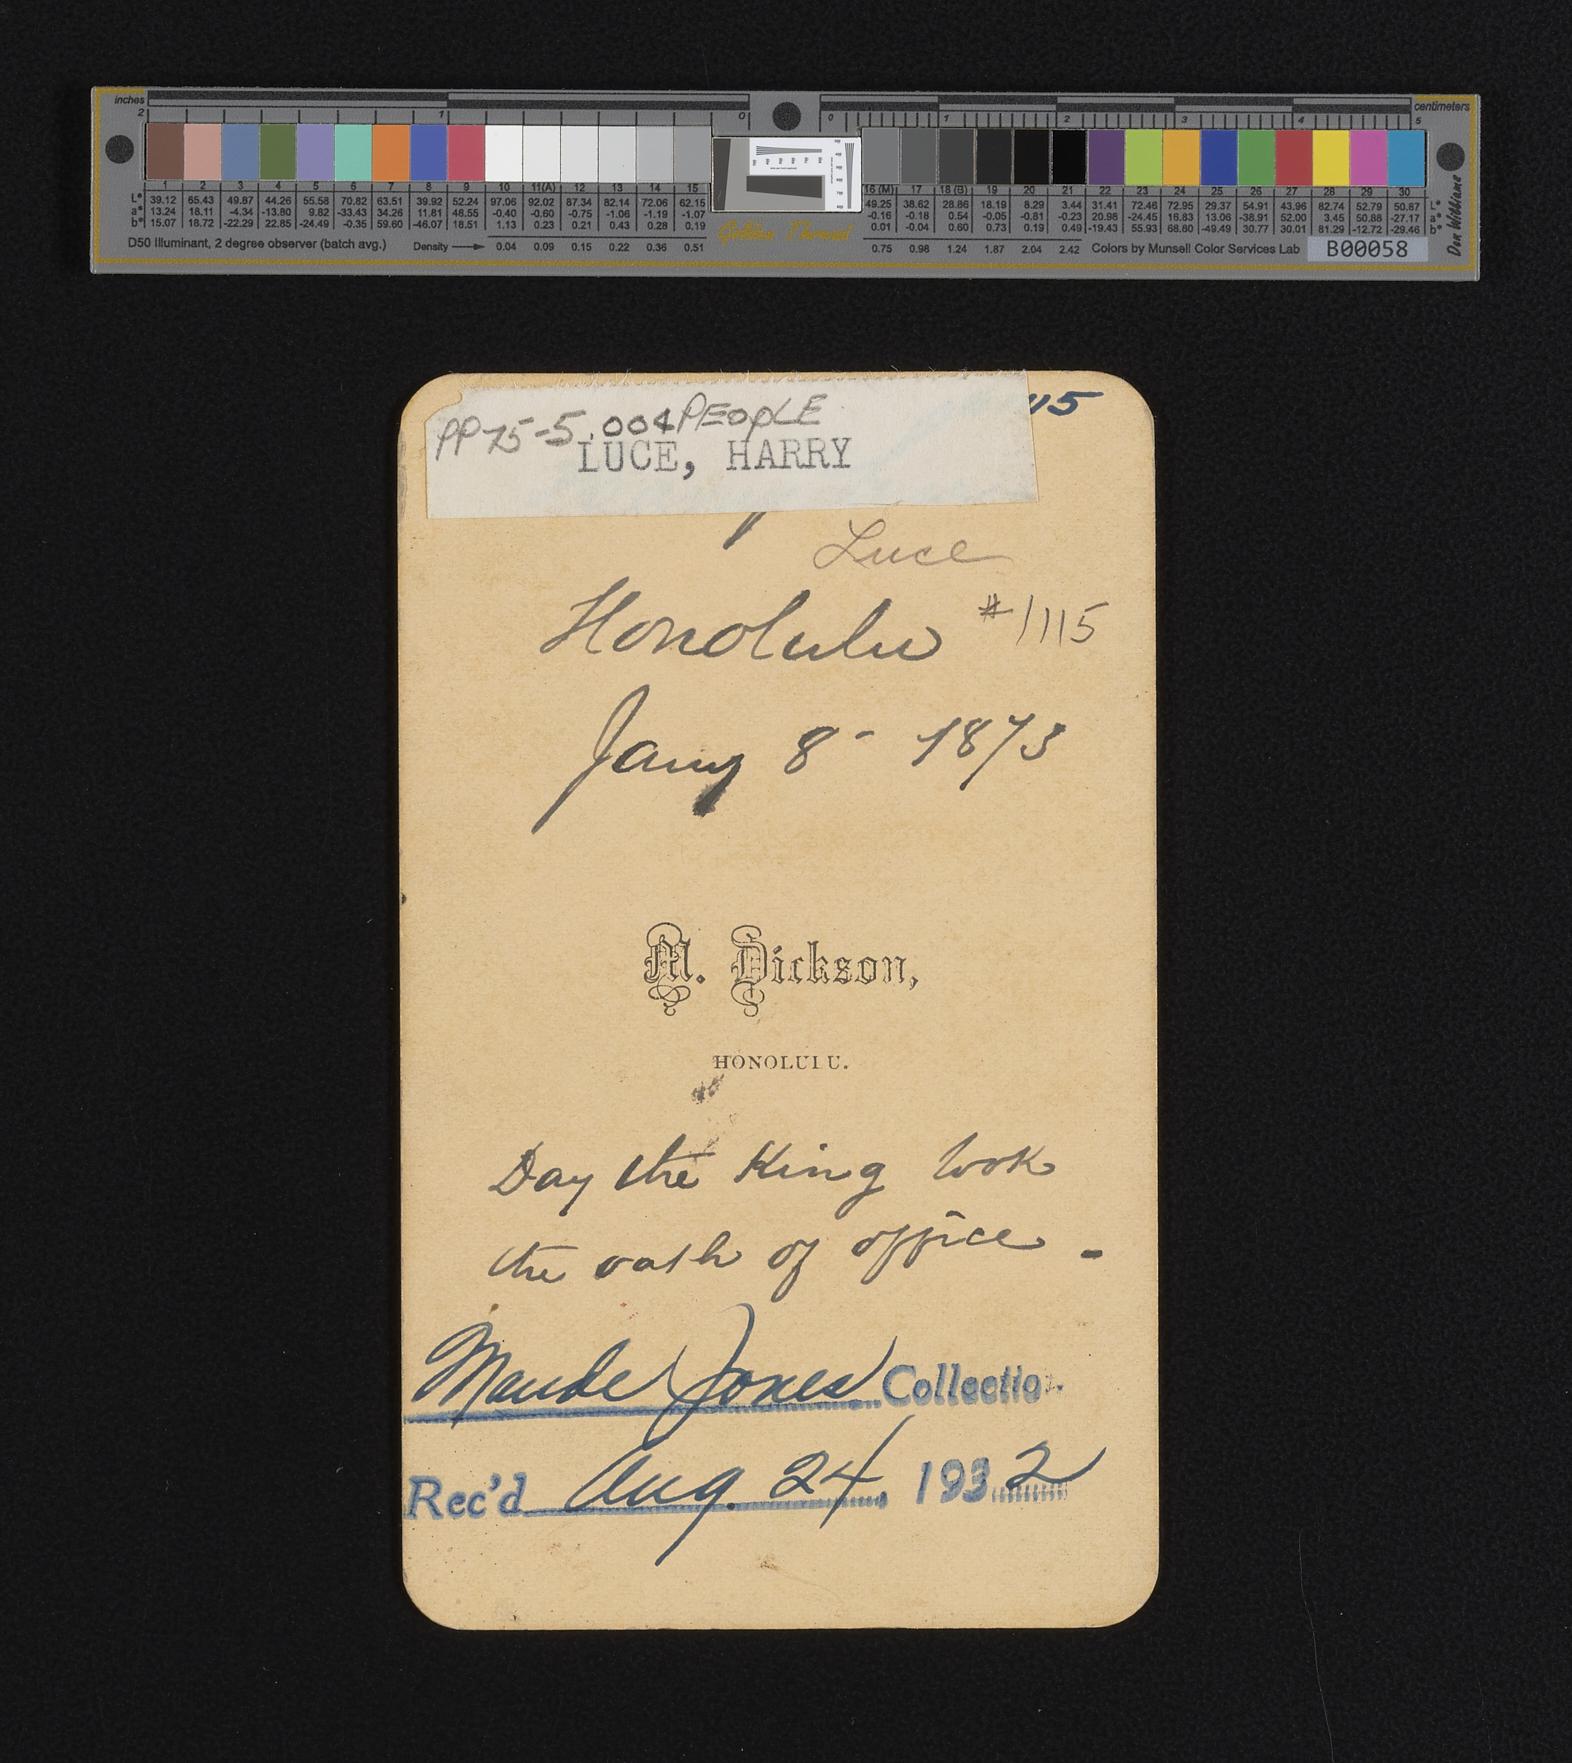 inches
centimeters
2 1 0 0 1 2 3 4 5
1 2 3 4 5 6 7 8 9 10 11(A) 12 13 14 15 16 (M) 17 18 (B) 19 20 21 22 23 24 25 26 27 28 29 30
L* 39.12 65.43 49.87 44.26 55.58 70.82 63.51 39.92 52.24 97.06 92.02 87.34 82.14 72.06 62.15 49.25 38.62 28.86 18.19 8.29 3.44 31.41 72.46 72.95 29.37 54.91 43.96 82.74 52.79 50.87 L*
a* 13.24 18.11 -4.34 -13.80 9.82 -33.43 34.26 11.81 48.55 -0.40 -0.60 -0.75 -1.06 -1.19 -1.07 -0.16 -0.18 0.54 -0.05 -0.81 -0.23 20.98 -24.45 16.83 13.06 -38.91 52.00 3.45 50.88 -27.17 a*
b* 15.07 18.72 -22.29 22.85 -24.49 -0.35 59.60 -46.07 18.51 1.13 0.23 0.21 0.43 0.28 0.19 0.01 -0.04 0.60 0.73 0.19 0.49 -19.43 55.93 68.80 -49.49 30.77 30.01 81.29 -12.72 -29.46 b*
D50 Illuminant, 2 degree observer (batch avg.) Density 0.04 0.09 0.15 0.22 0.36 0.51 Golden Thread 0.75 0.98 1.24 1.87 2.04 2.42 Colors by Munsell Color Services Lab B00058
Don Williams
PP75-5.004 PEOPLE
115
LUCE, HARRY
Luce
Honolulu #1115
Jany 8- 1873
M. Dickson,
HONOLULU.
Day the King took
the oath of office -
Maude Jones Collection
Rec'd Aug. 24, 1932